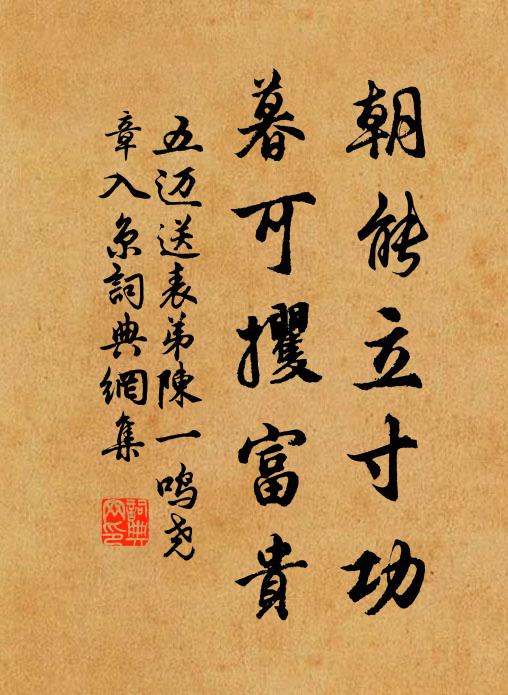 朝能立寸功
暮可攫富貴
五迈送表弟陳一鸣尧
章入京詞典網集
詞典
网印